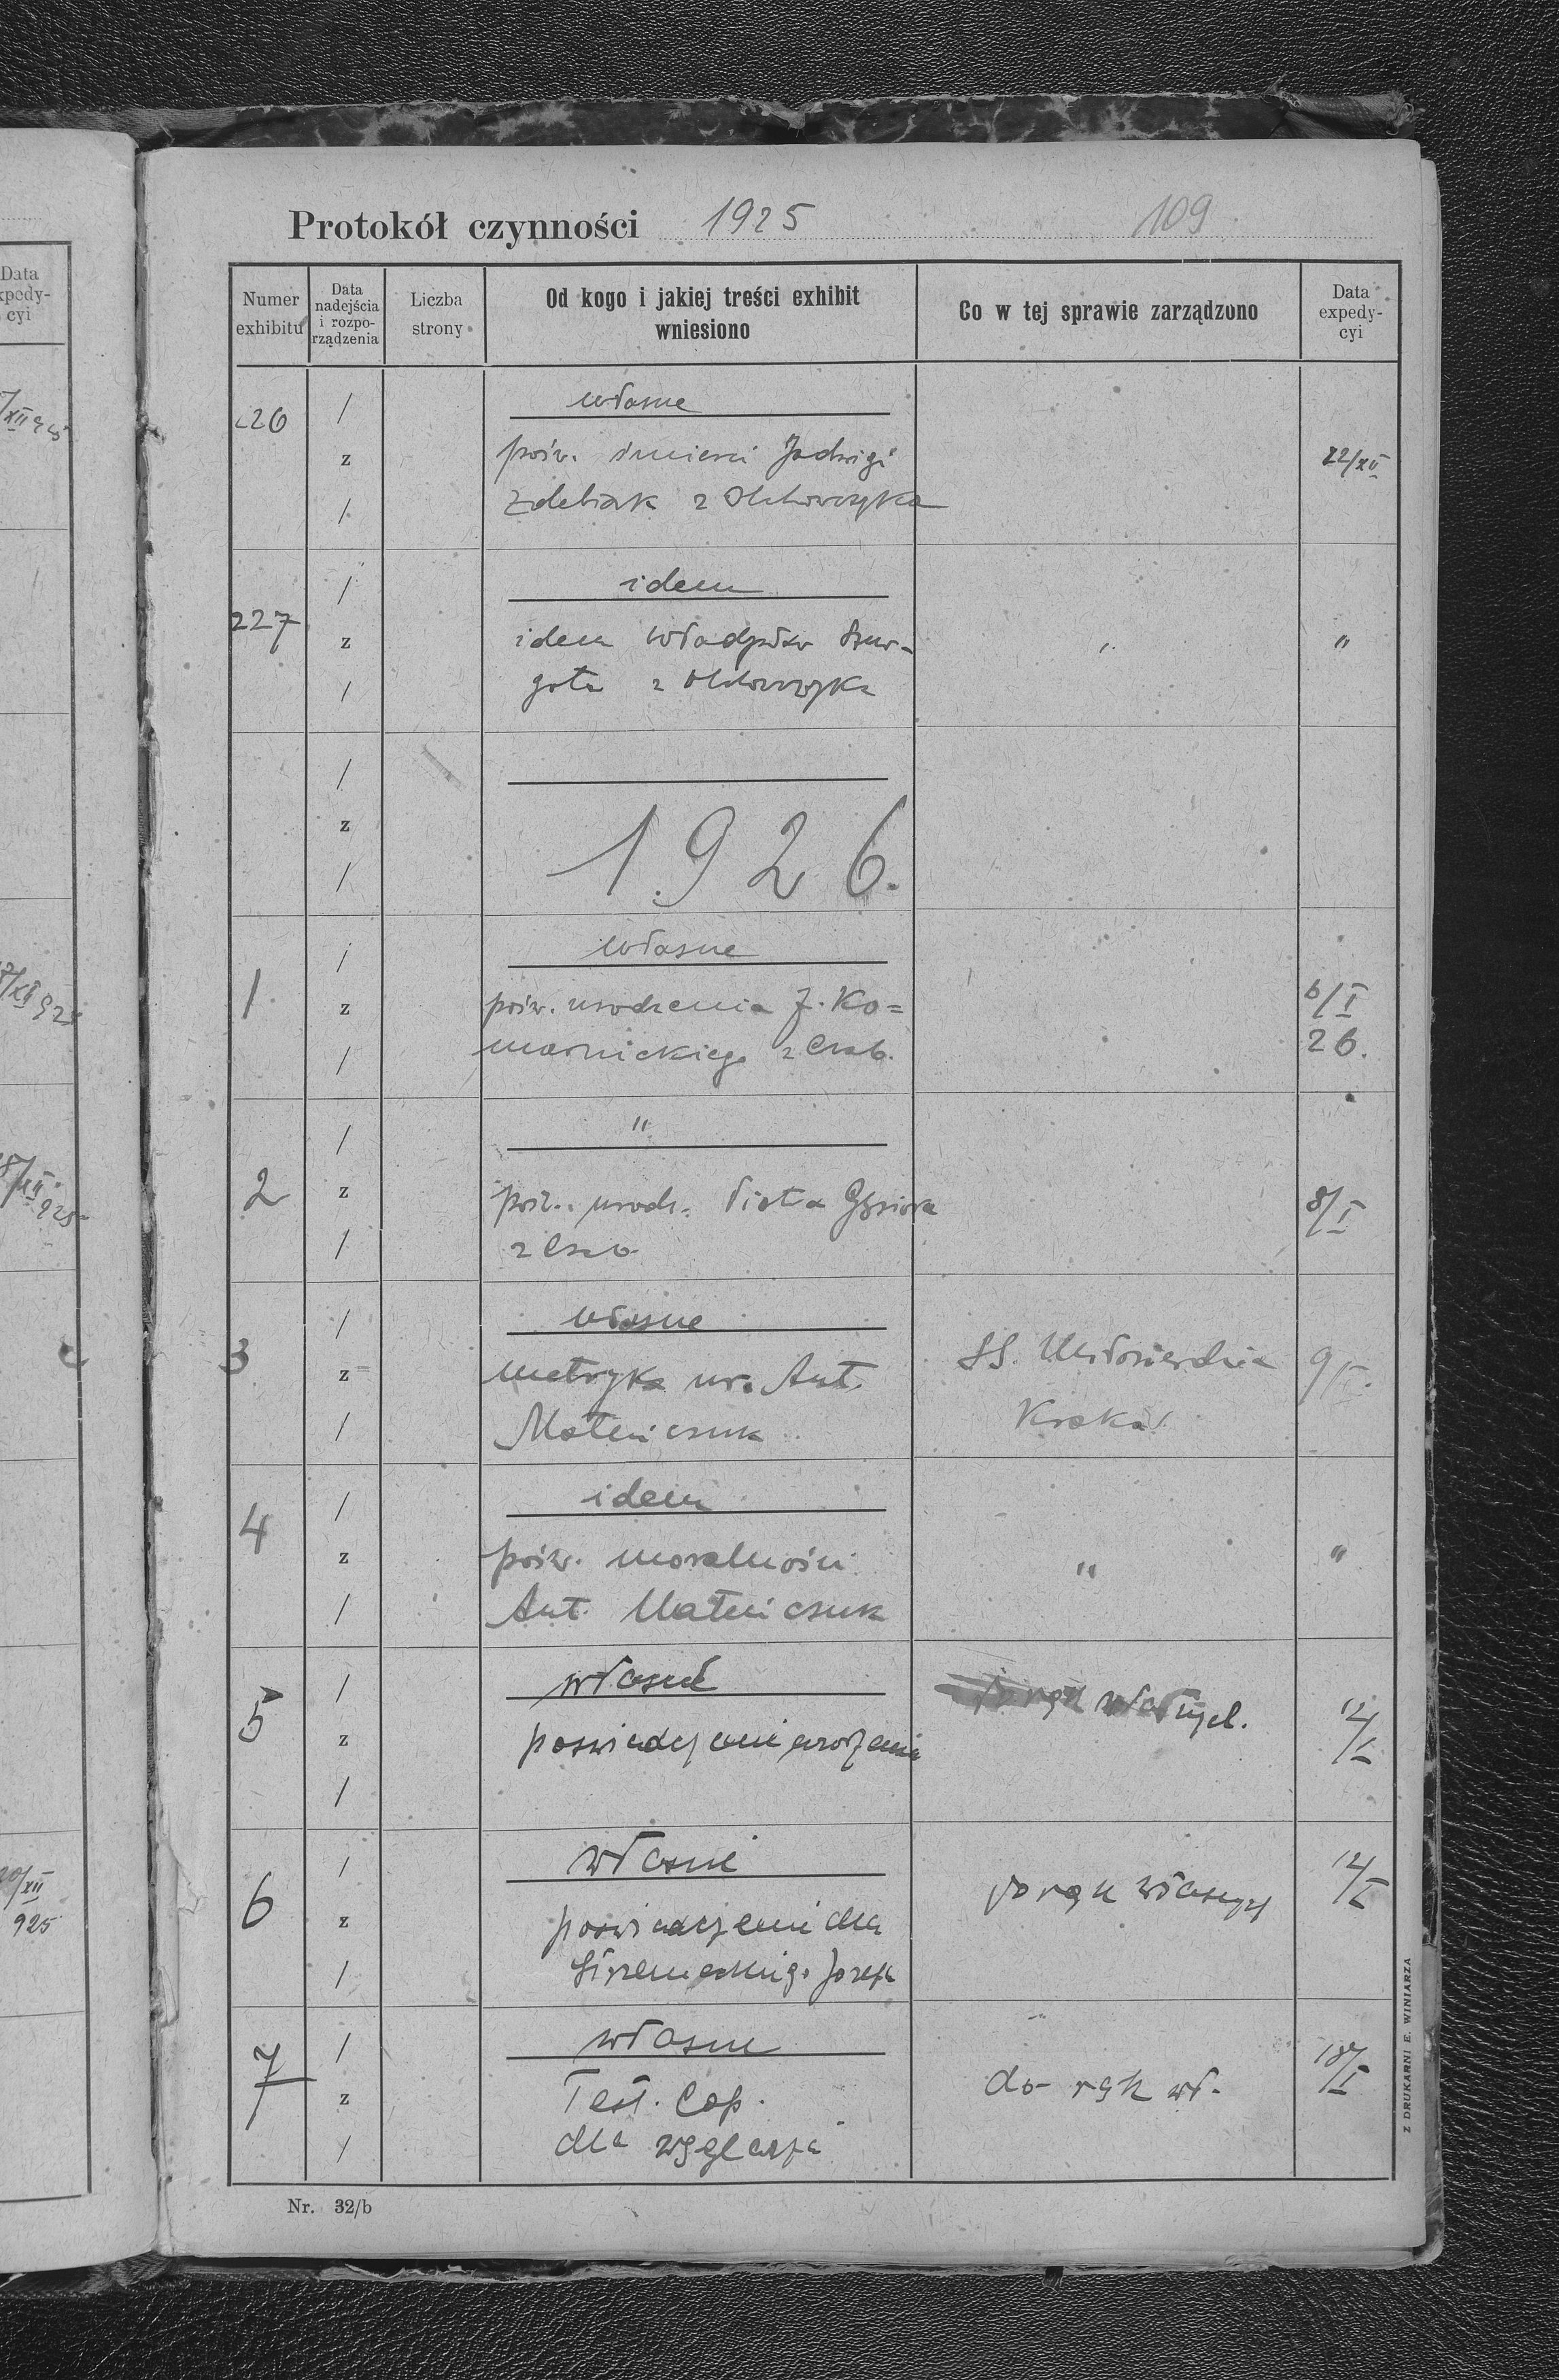 Protokół czynności 1925 109
Numer exhibitu
Data nadejścia i rozporządzenia
Liczba strony
Od kogo i jakiej treści exhibit wniesiono
Co w tej sprawie zarządzono
Data expedycyi
226 / z /
własne
pośw. śmierci Jadwigi
22/XII
Zdebiak z
227 / z /
idem
idem
" "
z
/ z /
1926.
1 / z /
własne
pośw. urodzenia J. Ko=
6/I
marnickiego z Czab.
26.
2 / z /
"
pośw. urodz. Piotra
8/I
z Czab
3 / z /
własne
metryka ur. Ant.
SS. Miłosierdzia
9/I.
Mateiczuk
Kraków
4 / z /
idem
pośw. moralności
" "
Ant. Mateiczuk
5 / z /
własne
do rąk własnych.
12/I
poświadczenie urodzenia
6 / z /
własne
do rąk własnych
12/I
poświadczenie dla
Józefa
7 / z /
własne
Test. Cop.
do rąk wł.
18/I
dla Węglarza
Nr. 32/b
Z DRUKARNI E. WINIARZA
Data
expedy-
cyi
/XII 925
/XII 925
8/XII 925
20/XII
925